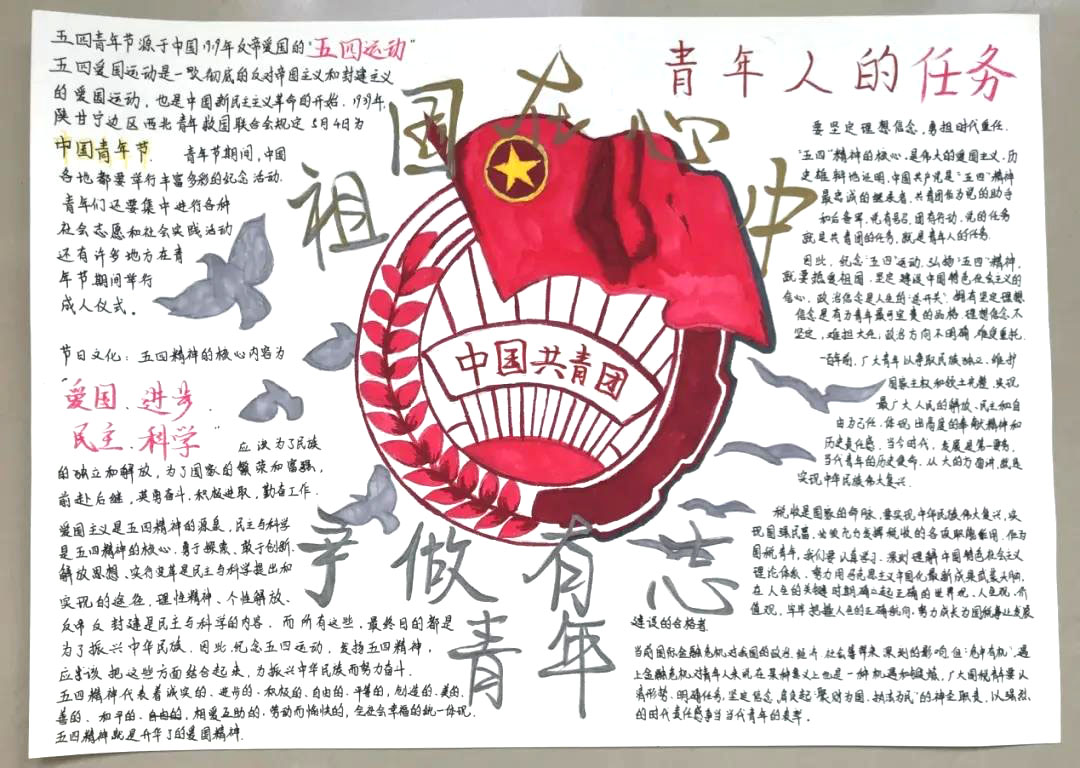 五四青年节源于中国1919年反帝爱国的"五四运动"
五四爱国运动是一次彻底的反对帝国主义和封建主义
的爱国运动，也是中国新民主主义革命的开始．1939年，
陕甘宁边区西北青年救国联合会规定5月4日为
中国青年节．青年节期间，中国
各地都要举行丰富多彩的纪念活动．
青年们还要集中进行各种
社会志愿和社会实践活动
还有许多地方在青
年节期间举行
成人仪式．
节日文化：五四精神的核心内容为
"爱国．进步．
民主．科学"应该为了民族
的独立和解放，为了国家的繁荣和富强，
前赴后继，英勇奋斗，积极进取，勤奋工作．
爱国主义是五四精神的源泉，民主与科学
是五四精神的核心．勇于探索、敢于创新、
解放思想、实行变革是民主与科学提出和
实现的途径，理性精神、个性解放、
反帝反封建是民主与科学的内容．而所有这些，最终目的都是
为了振兴中华民族．因此，纪念五四运动，发扬五四精神，
应当该把这些方面结合起来，为振兴中华民族而努力奋斗．
五四精神代表着诚实的、进步的、积极的、自由的、平等的，创造的、美的、
善的、和平的、自由的，相爱互助的、劳动而愉快的，全社会幸福的统一体现．
五四精神就是升华了的爱国精神．
祖国在心中
中国共青团
争做有志
青年
青年人的任务
要坚定理想信念，勇担时代重任．
"五四"精神的核心，是伟大的爱国主义．历
史雄辩地证明，中国共产党是"五四"精神
最忠诚的继承者．共青团作为党的助手
和后备军，党有号召，团有行动，党的任务
就是共青团的任务，就是青年人的任务．
因此，纪念"五四"运动，弘扬"五四"精神，
就要热爱祖国，坚定建设中国特色社会主义的
信心．政治信念是人生的"总开关"．拥有坚定理想
信念是有为青年最可宝贵的品格，理想信念不
坚定，难担大任，政治方向不明确，难受重托．
一百年前，广大青年以争取民族独立、维护
国家主权和领土完整，实现
最广大人民的解放、民主和自
由为己任，体现出高度的奉献精神和
历史责任感．当今时代，发展是第一要务，
当代青年的历史使命，从大的方面讲，就是
实现中华民族伟大复兴．
税收是国家的命脉，要实现中华民族伟大复兴，实
现国强民富，必须充分发挥税收的各项职能作用．作为
国税青年，我们要认真学习、深刻理解中国特色社会主义
理论体系，努力用马克思主义中国化最新成果武装头脑，
在人生的关键时期确立起正确的世界观、人生观、价
值观，牢牢把握人生的正确航向，努力成长为国税事业发展
建设的合格者
当前国际金融危机对我国的政治、经济、社会等带来深刻的影响，但"危中有机"，遇
上金融危机对青年人来说在某种意义上也是一种机遇和锻炼，广大国税青年要认
清形势，明确任务，坚定信念，肩负起"聚财为国、执法为民"的神圣职责，以强烈
的时代责任感争当当代青年的表率．